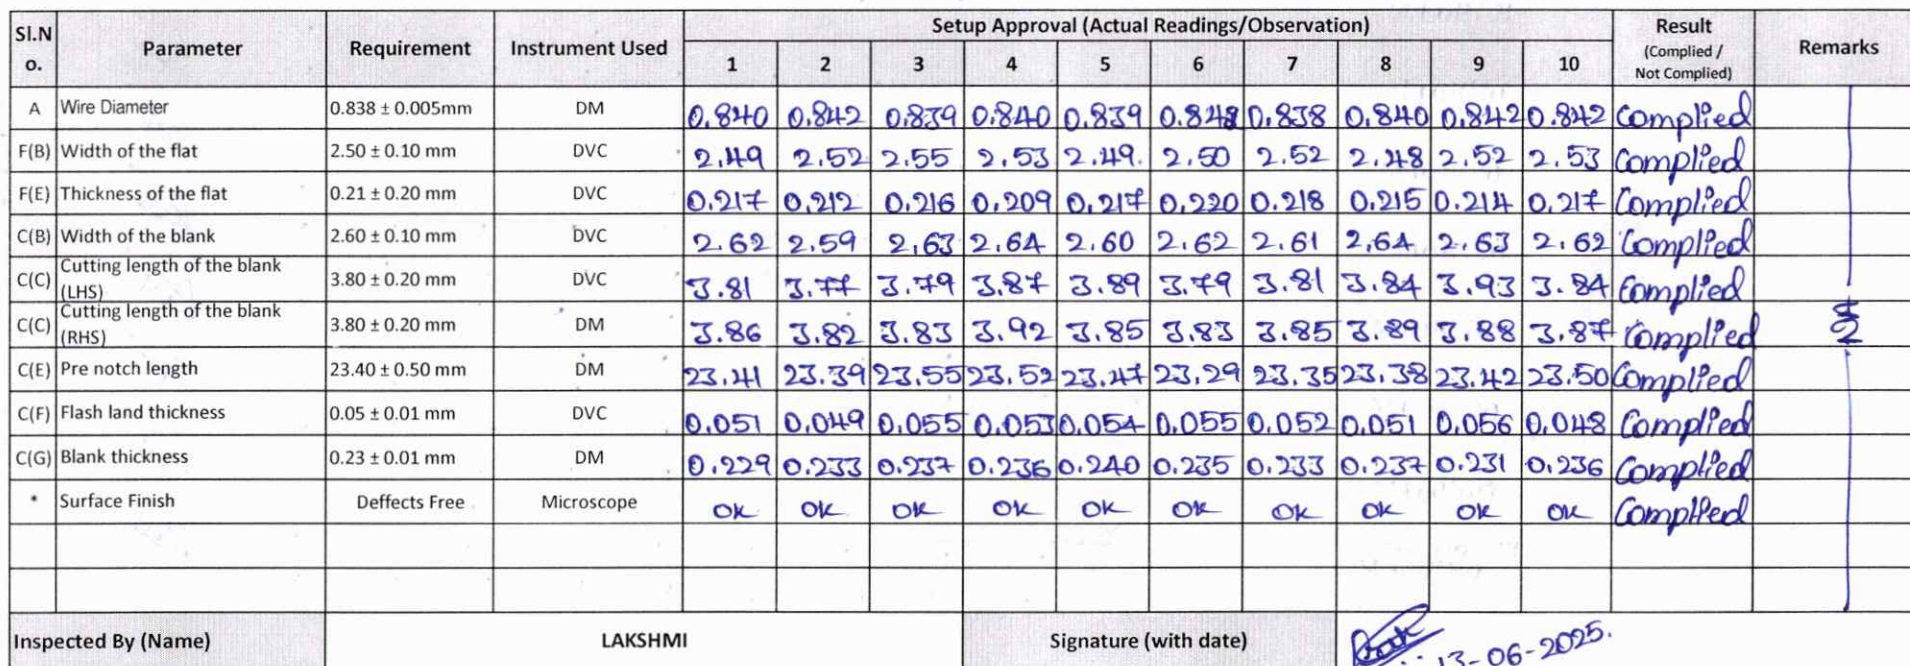 Sl.No. Parameter Requirement Instrument Used Setup Approval (Actual Readings/Observation) Result (Complied / Not Complied) Remarks
1 2 3 4 5 6 7 8 9 10
A Wire Diameter 0.838 ± 0.005mm DM 0.840 0.842 0.839 0.840 0.839 0.838 0.840 0.842 0.842 Complied
F(B) Width of the flat 2.50 ± 0.10 mm DVC 2.49 2.52 2.55 2.53 2.49. 2.50 2.52 2.48 2.52 2.53 Complied
F(E) Thickness of the flat 0.21 ± 0.20 mm DVC 0.217 0.212 0.216 0.209 0.217 0.220 0.218 0.215 0.214 0.217 Complied
C(B) Width of the blank 2.60 ± 0.10 mm DVC 2.62 2.59 2.63 2.64 2.60 2.62 2.61 2.64 2.63 2.62 Complied
C(C) Cutting length of the blank (LHS) 3.80 ± 0.20 mm DVC 3.81 3.77 3.79 3.87 3.89 3.79 3.81 3.84 3.93 3.84 Complied
C(C) Cutting length of the blank (RHS) 3.80 ± 0.20 mm DM 3.86 3.82 3.83 3.92 3.85 3.83 3.85 3.89 3.88 3.87 Complied
C(E) Pre notch length 23.40 ± 0.50 mm DM 23.41 23.39 23.55 23.52 23.47 23.29 23.35 23.38 23.42 23.50 Complied
C(F) Flash land thickness 0.05 ± 0.01 mm DVC 0.051 0.049 0.055 0.053 0.054 0.055 0.052 0.051 0.056 0.048 Complied
C(G) Blank thickness 0.23 ± 0.01 mm DM 0.229 0.233 0.237 0.236 0.240 0.235 0.233 0.237 0.231 0.236 Complied
* Surface Finish Deffects Free Microscope OK OK OK OK OK OK OK OK OK OK Complied
Inspected By (Name) LAKSHMI Signature (with date) 13-06-2025.